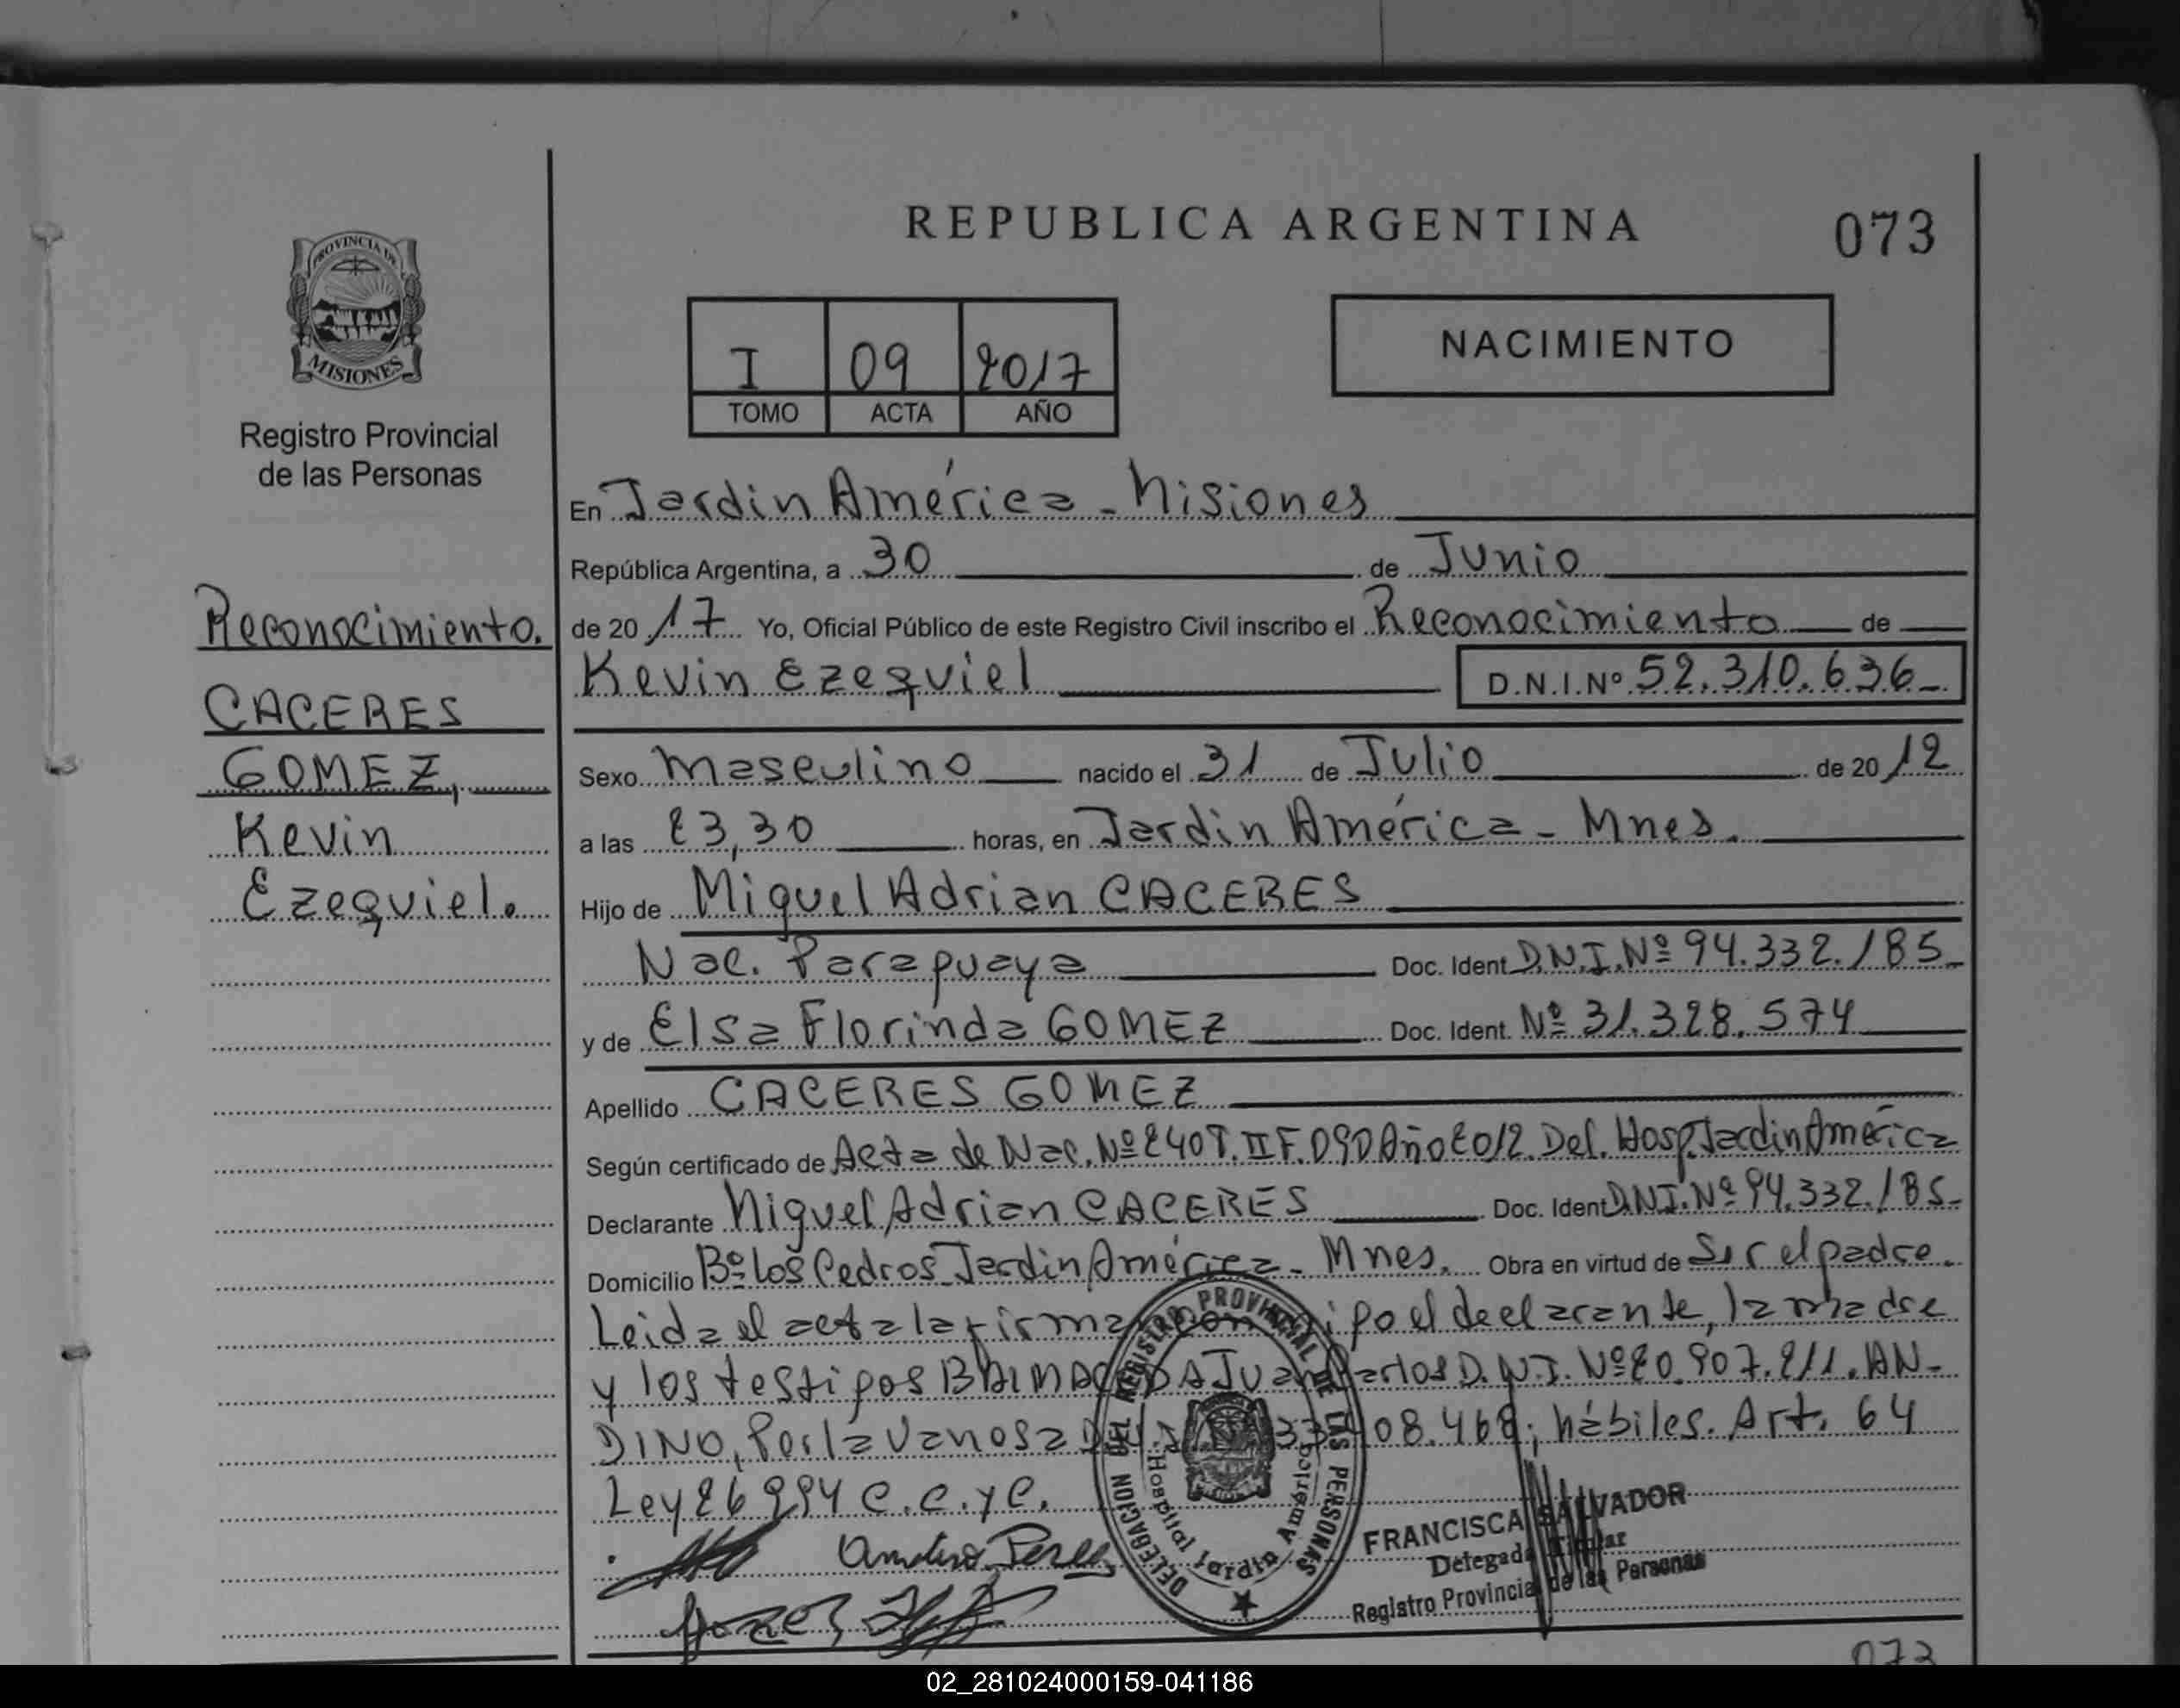 REPUBLICA ARGENTINA
073
PROVINCIA DE
MISIONES
Registro Provincial
de las Personas
I 09 2017
TOMO ACTA AÑO
NACIMIENTO
Reconocimiento.
CACERES
GOMEZ,
Kevin
Ezequiel.
En Jardin América - Misiones
República Argentina, a 30 de Junio
de 2017 Yo, Oficial Público de este Registro Civil inscribo el Reconocimiento de
Kevin Ezequiel D.N.I.Nº 52.310.636
Sexo Masculino nacido el 31 de Julio de 2012
a las 23,30 horas, en Jardin América - Mnes.
Hijo de Miguel Adrian CACERES
Nac. Paraguaya Doc. Ident D.N.I.Nº 94.332.185
y de Elsa Florinda GOMEZ Doc. Ident. Nº 31.328.574
Apellido CACERES GOMEZ
Según certificado de Acta de Nac. Nº 240 T. II F. 090 Año 2012. Del. Hosp. Jardin América
Declarante Miguel Adrian CACERES Doc. Ident D.N.I.Nº 94.332.185
Domicilio Bº Los Cedros Jardin América - Mnes. Obra en virtud de Ser el padre.
Leida el acta la firma con el declarante, la madre
y los testigos Juan Carlos D.N.I. Nº 20.907.211. AN-
DINO, Perla Vanosa 08.468; hábiles. Art. 64
Ley 26994 C.C.yC.
DELEGACION DEL REGISTRO PROVINCIAL DE LAS PERSONAS
Hospital Jardin América
FRANCISCA SALVADOR
Delegada Titular
Registro Provincial de las Personas
073
02_281024000159-041186